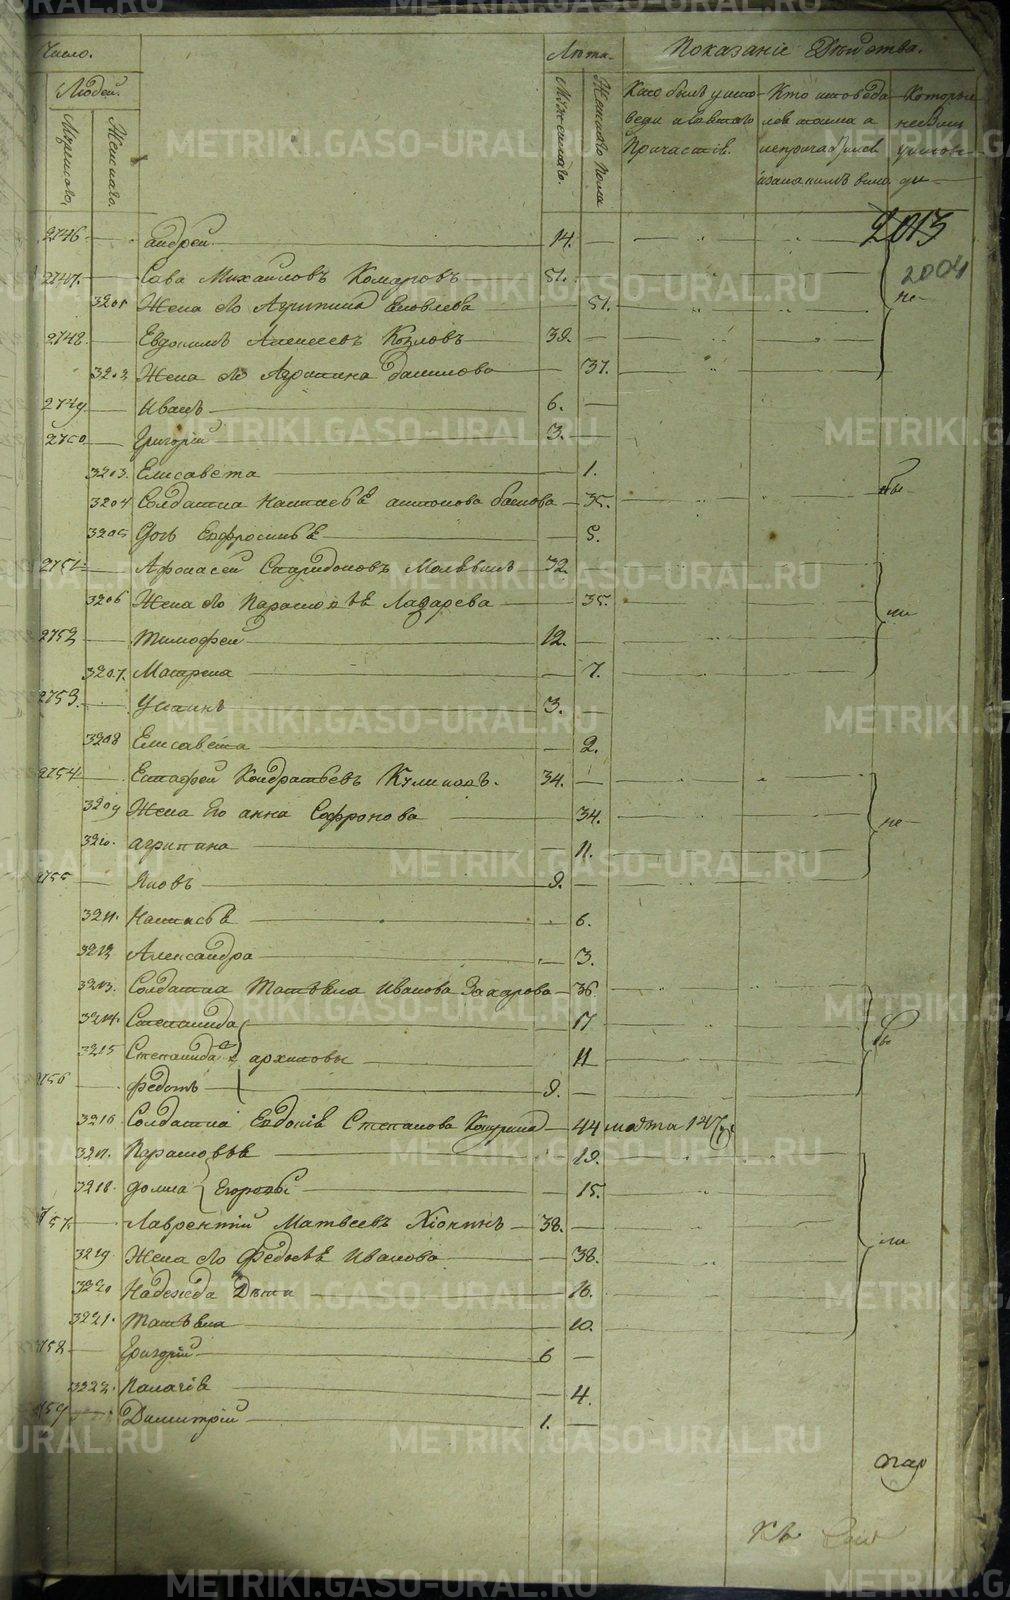 Число.
Лѣта.
Показаніе Дѣйства.
Людей.
Мужеска.
Женскаго.
Мужескаго.
Женскаго пола
Кто былъ у испо-
веди и Святаго
Причастія.
Кто исповеда
лся токмо а
непричастился
Которые
небыли
у испове-
ди
2013
2004
2746 андрей 14.
2747. Сава Михайловъ Комаровъ 51.
3201 Жена его Агрипина Яковлева 51.
не
2748. Евдокимъ Алексеевъ Козловъ 39.
3202 Жена его Агрипина данилова 37.
2749 Иванъ 6.
2750 Григорій 3.
3203. Елисавета 1.
бы
3204 Солдатка Настасья антонова 35.
3205 Дочь Евфросинья 5.
2751 Афонасей Спиридоновъ 32.
3206 Жена его Парасковья Лазарева 35.
ли
2752 Тимофей 12.
3207. Матрена 7.
2753. Устинъ 3.
3208 Елисавета 2.
2754 Естафей Кондратьевъ Куликовъ. 34.
3209 Жена Его анна Софронова 34.
не
3210. агрипина 11.
2755 Яковъ 9.
3211. Настасья 6.
3212 Александра 3.
3213. Солдатка Татьяна Иванова Захарова 36.
3214. Степанида 17
бы
3215 Степанида 2я архиповы 11
2756 Федотъ 9.
3216 Солдатка Евдокія Степанова 44 марта 14
3217. Парасковья 19.
3218. домна Егоровы 15.
2757. Лаврентій Матвеевъ 38.
ли
3219. Жена его Федосья Иванова 38.
3220 Надежда Дѣти 16.
3221. Татьяна 10.
2758 Григорій 6
3222. Палагія 4.
2759 Димитрій 1.
METRIKI.GASO-URAL.RU